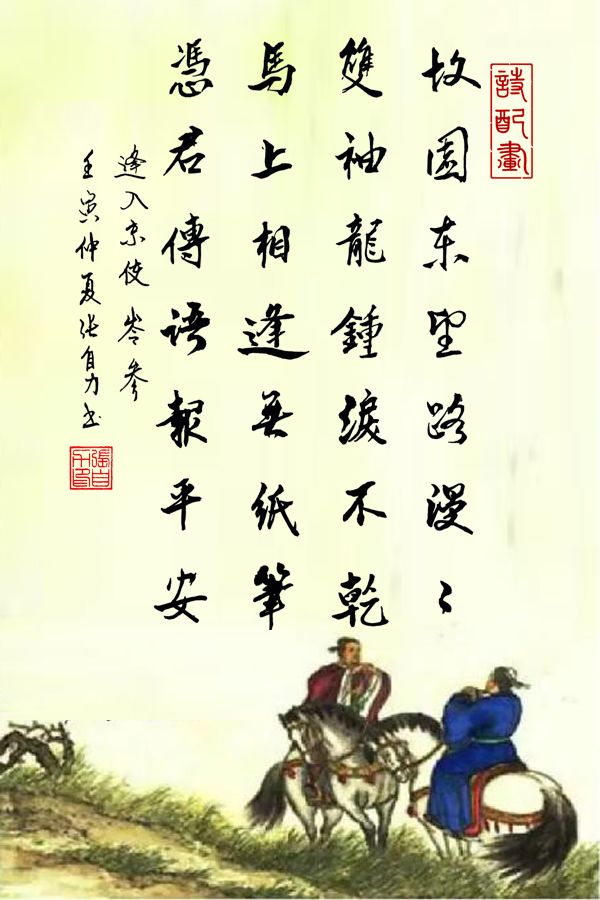 詩配畫
故園东望路漫〻
雙袖龍鍾淚不乾
馬上相逢無紙筆
憑君傳語報平安
逢入京使 岑參
壬寅仲夏张自力书
張自力印